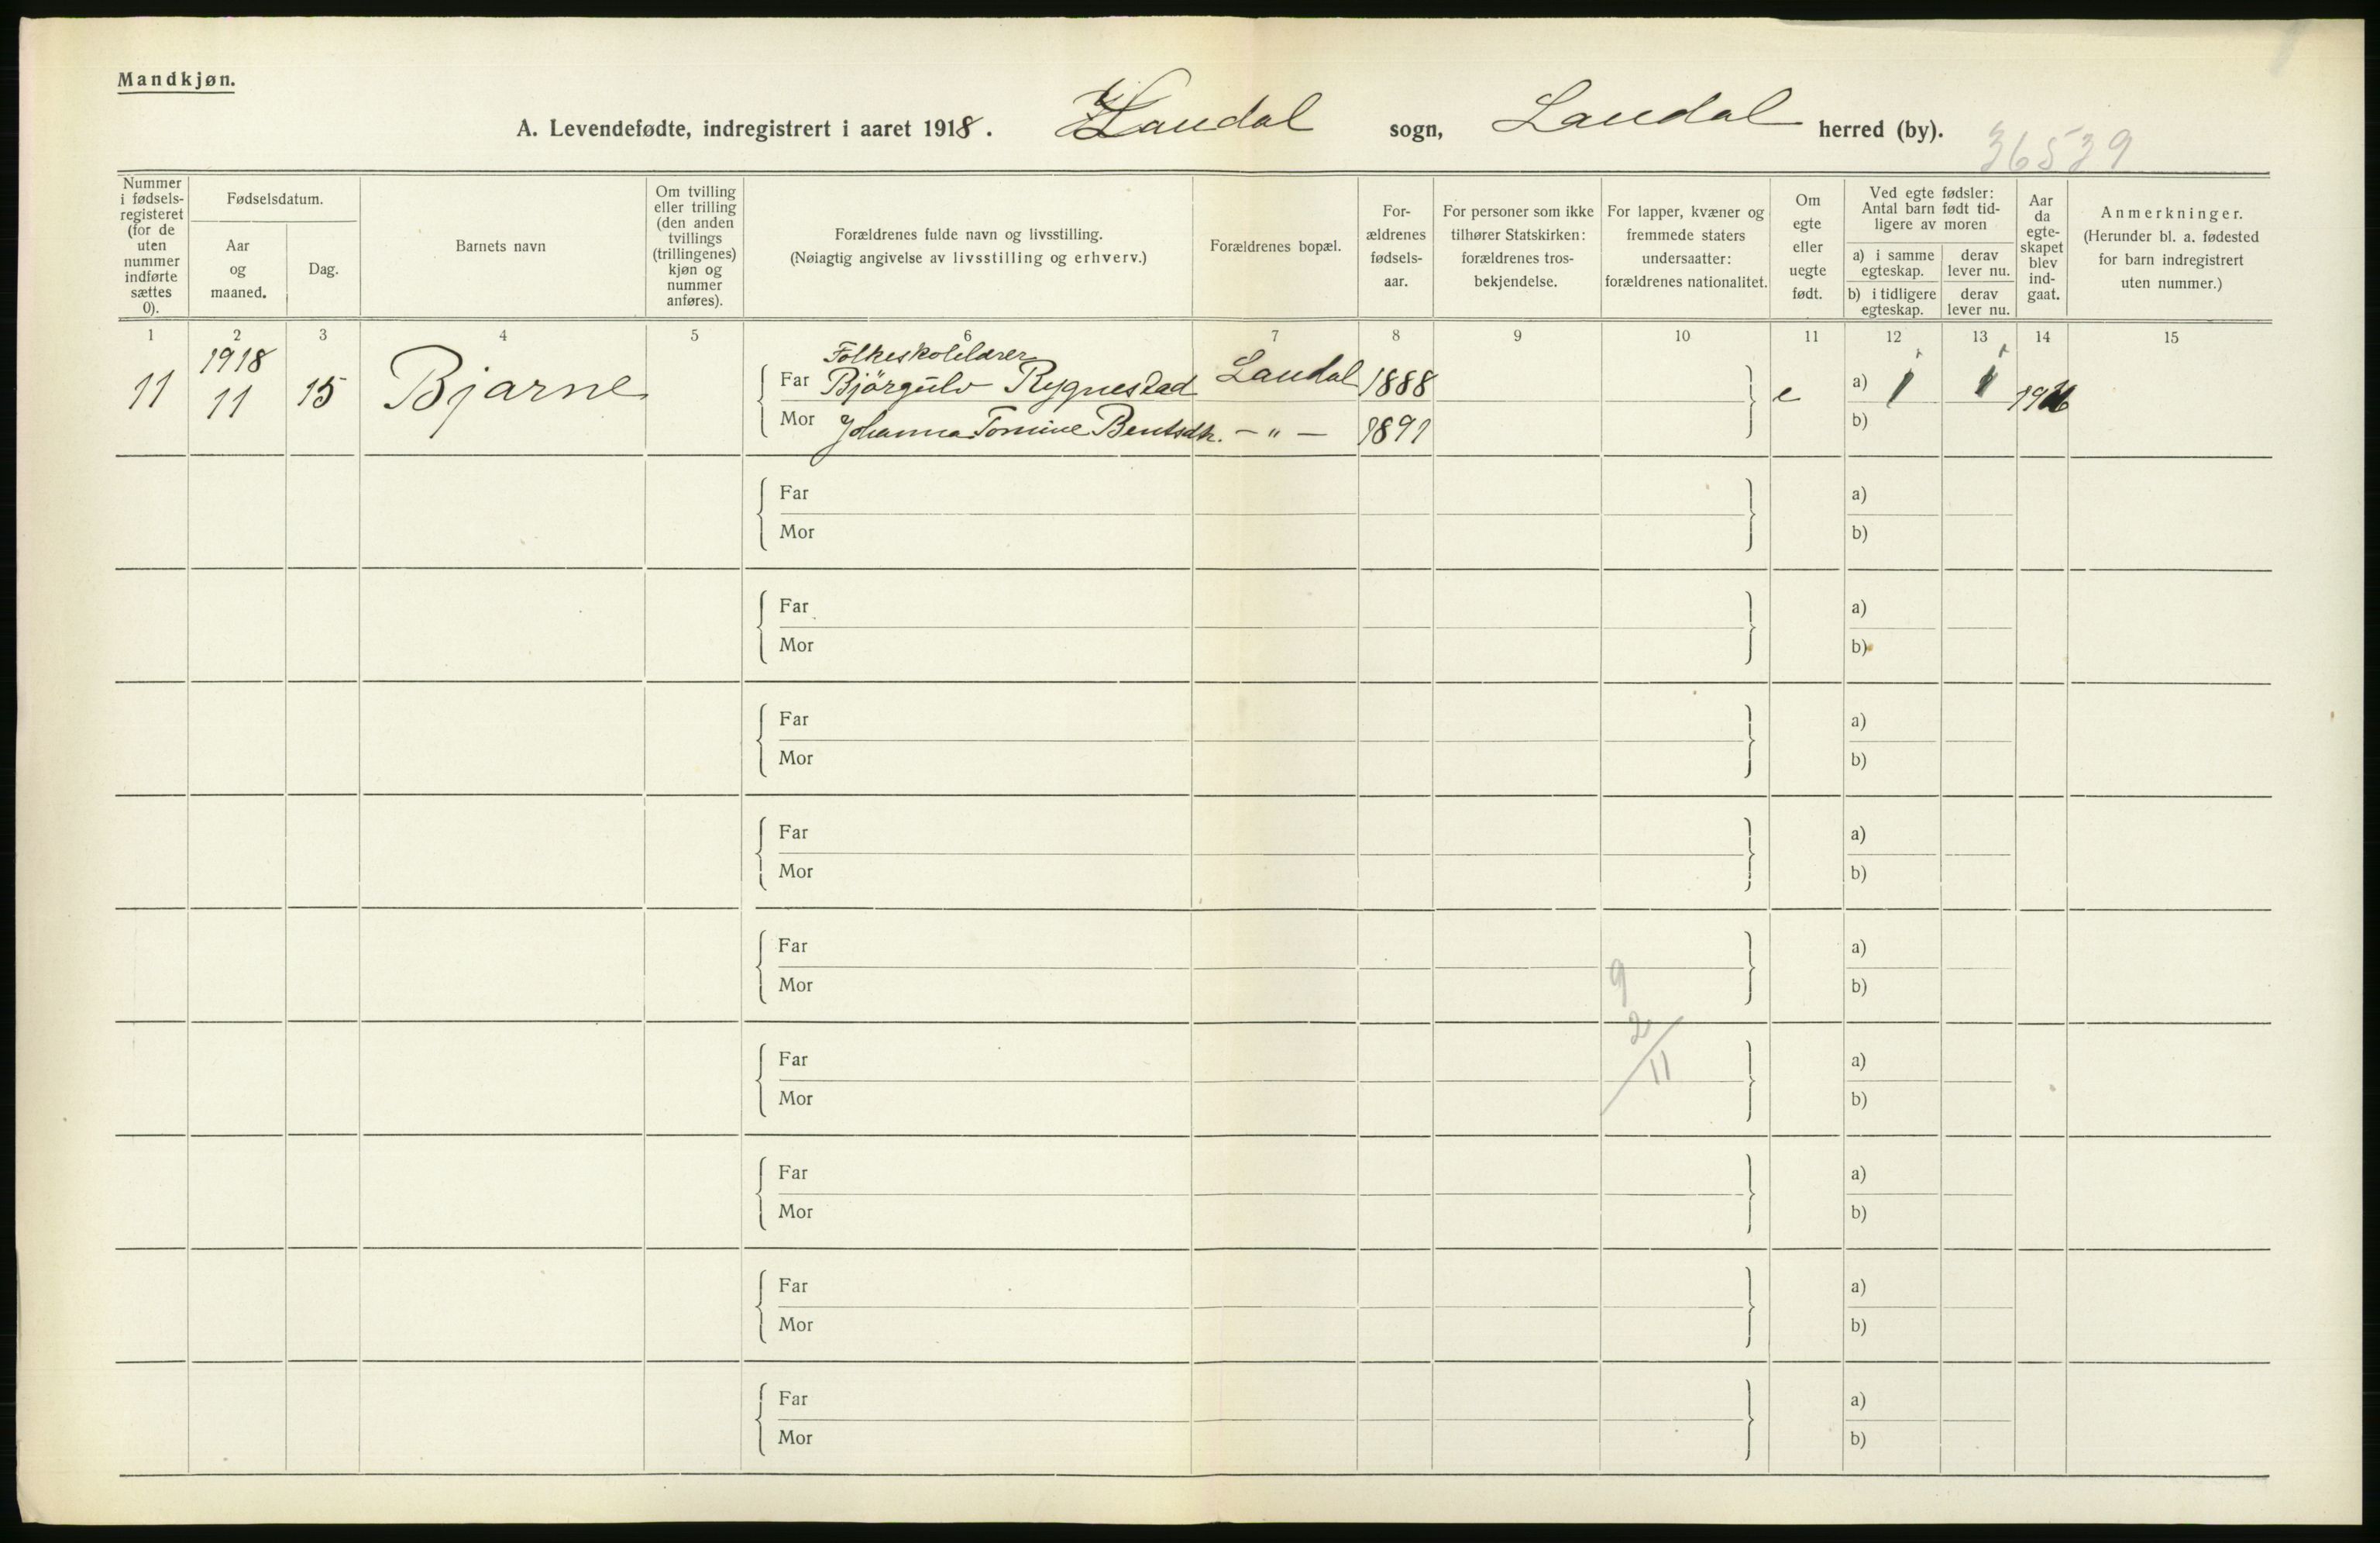 Mandkjøn.
A. Levendefødte, indregistrert i aaret 1918. Laudal sogn, Laudal herred (by).
36539
Nummer i fødsels-registeret (for de uten nummer indførte sættes 0).
Fødselsdatum.
Aar og maaned.
Dag.
Barnets navn
Om tvilling eller trilling (den anden tvillings (trillingenes) kjøn og nummer anføres).
Forældrenes fulde navn og livsstilling.
(Nøiagtig angivelse av livsstilling og erhverv.)
Forældrenes bopæl.
For-ældrenes fødsels-aar.
For personer som ikke tilhører Statskirken: forældrenes tros-bekjendelse.
For lapper, kvæner og fremmede staters undersaatter: forældrenes nationalitet.
Om egte eller uegte født.
Ved egte fødsler: Antal barn født tid-ligere av moren
a) i samme egteskap.
derav lever nu.
b) i tidligere egteskap.
derav lever nu.
Aar da egte-skapet blev ind-gaat.
Anmerkninger.
(Herunder bl. a. fødested for barn indregistrert uten nummer.)
1 2 3 4 5 6 7 8 9 10 11 12 13 14 15
1918
Folkeskolelærer
11 11 15 Bjarne Far Bjørgulv Rygnestad Laudal 1888 e a) 1 1
Mor Johanna Tomine Bentsdtr. - " - 1891 b)
Far a)
Mor b)
Far a)
Mor b)
Far a)
Mor b)
Far a)
Mor b)
Far a)
Mor 9 b)
2/11
Far a)
Mor b)
Far a)
Mor b)
Far a)
Mor b)
Far a)
Mor b)